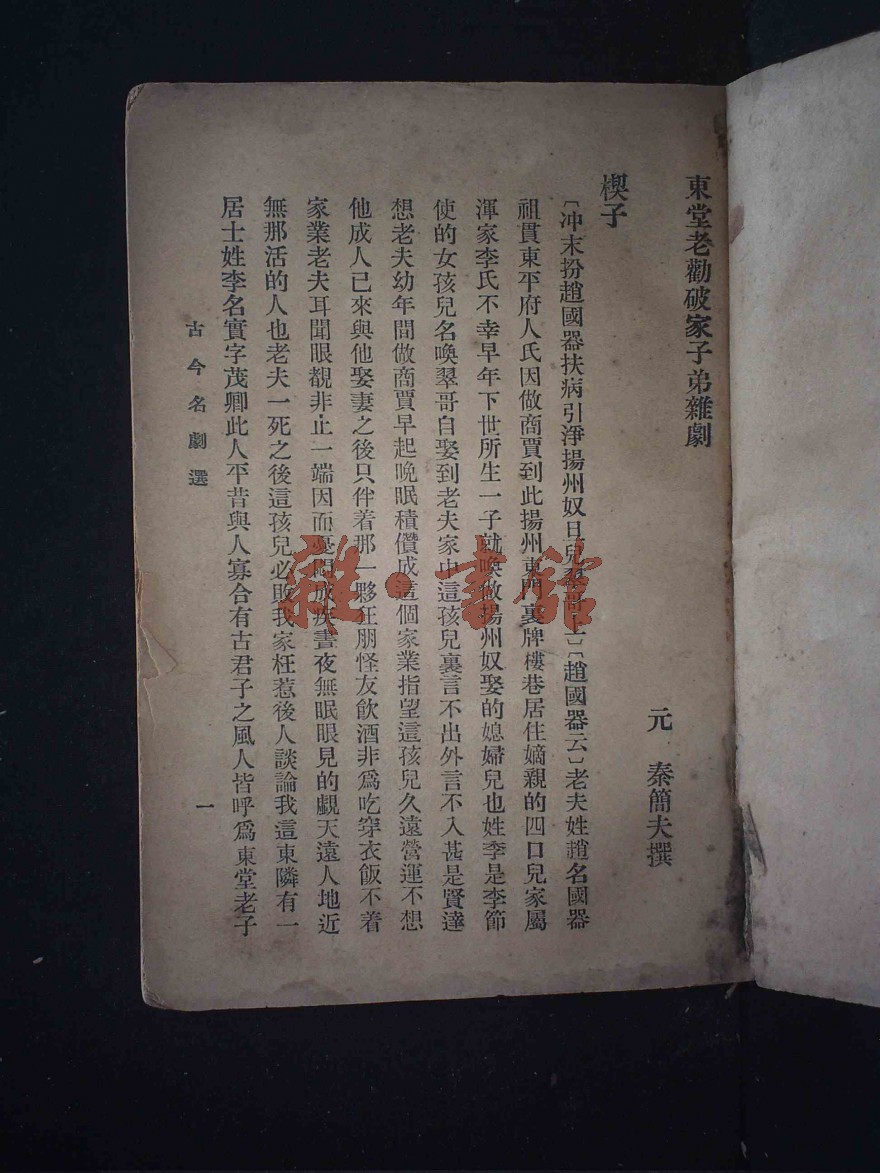 東堂老勸破家子弟雜劇
元 秦簡夫撰
楔子
〔沖末扮趙國器扶病引淨揚州奴旦兒翠哥上〕〔趙國器云〕老夫姓趙名國器
祖貫東平府人氏因做商賈到此揚州東門裏牌樓巷居住嫡親的四口兒家屬
渾家李氏不幸早年下世所生一子就喚做揚州奴娶的媳婦兒也姓李是李節
使的女孩兒名喚翠哥自娶到老夫家中這孩兒裏言不出外言不入甚是賢達
想老夫幼年間做商賈早起晚眠積儹成這個家業指望這孩兒久遠營運不想
他成人已來與他娶妻之後只伴着那一夥狂朋怪友飲酒非爲吃穿衣飯不着
家業老夫耳聞眼覩非止一端因而憂悶成疾晝夜無眠眼見的覷天遠人地近
無那活的人也老夫一死之後這孩兒必敗我家枉惹後人談論我這東隣有一
居士姓李名實字茂卿此人平昔與人寡合有古君子之風人皆呼爲東堂老子
古今名劇選
一
雜·書館